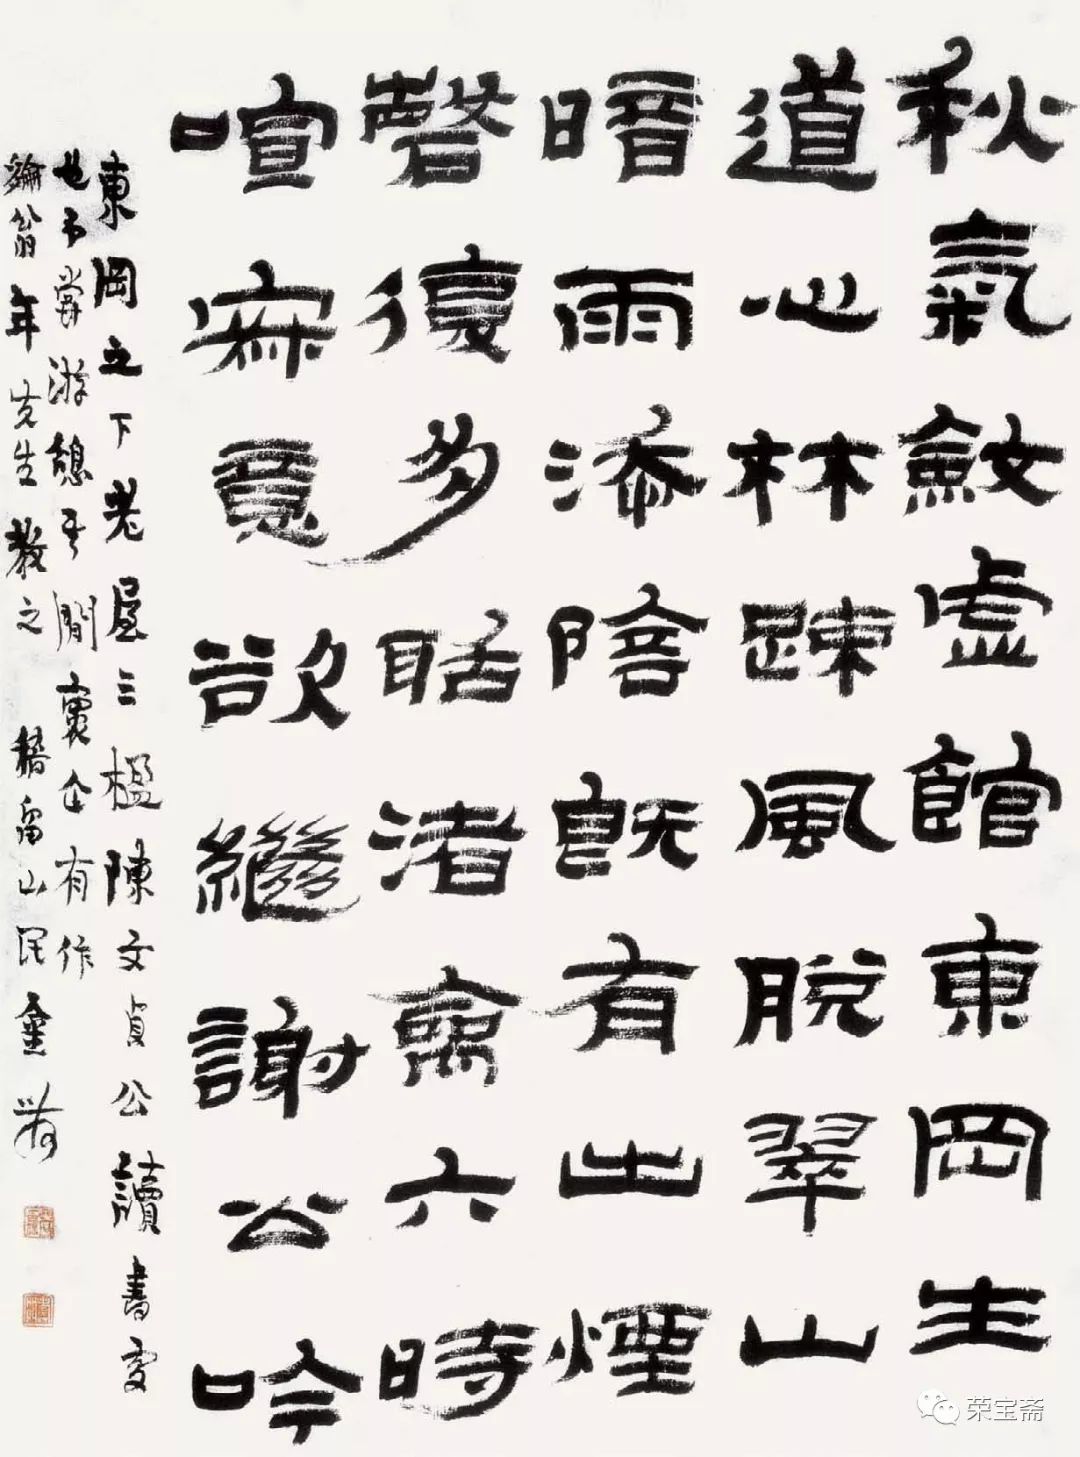 秋氣斂虛館東岡生
道心林疎風脫翠山
暗雨添陰既有出煙
磬復多聒渚禽六時
喧寐意欲繼謝公吟
東岡之下老屋三楹陳文貞公讀書處
也予嘗游憩其間褱企有作
綸翁年先生教之 嵇留山民金農
荣宝斋